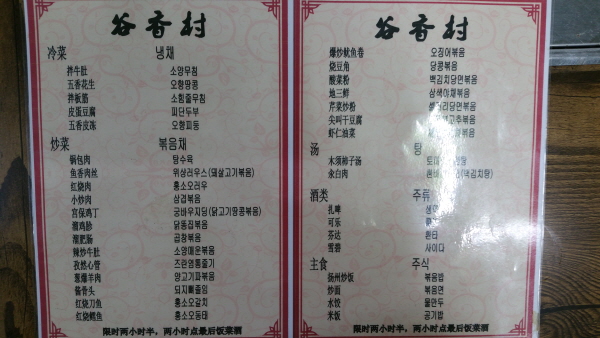 谷香村
冷菜 냉채
拌牛肚 소양무침
五香花生 오향땅콩
拌板筋 소힘줄무침
皮蛋豆腐 피단두부
五香皮冻 오향피동
炒菜 볶음채
锅包肉 탕수육
鱼香肉丝 위샹러우스(돼살고기볶음)
红烧肉 홍소오러우
小炒肉 삼겹볶음
宫保鸡丁 궁바우지딩(닭고기땅콩볶음)
溜鸡胗 닭똥집볶음
溜肥肠 곱창볶음
辣炒牛肚 소양매운볶음
孜然心管 즈란염통줄기
葱爆羊肉 양고기파볶음
酱骨头 되지뼈졸임
红烧刀鱼 홍소오갈치
红烧鲤鱼 홍소오동태
限时两小时半,两小时点最后饭菜酒
谷香村
爆炒鱿鱼卷 오징어볶음
烧豆角 당콩볶음
酸菜粉 백김치당면볶음
地三鲜 삼색야채볶음
芹菜炒粉 당면볶음
尖叫干豆腐 고추볶음
虾仁油菜
汤 탕
木须柿子汤
汆白肉 (백김치탕)
酒类 주류
扎啤
可乐
芬达 환타
雪碧 사이다
主食 주식
扬州炒饭 볶음밥
炒面 볶음면
水饺 물만두
米饭 공기밥
限时两小时半,两小时点最后饭菜酒